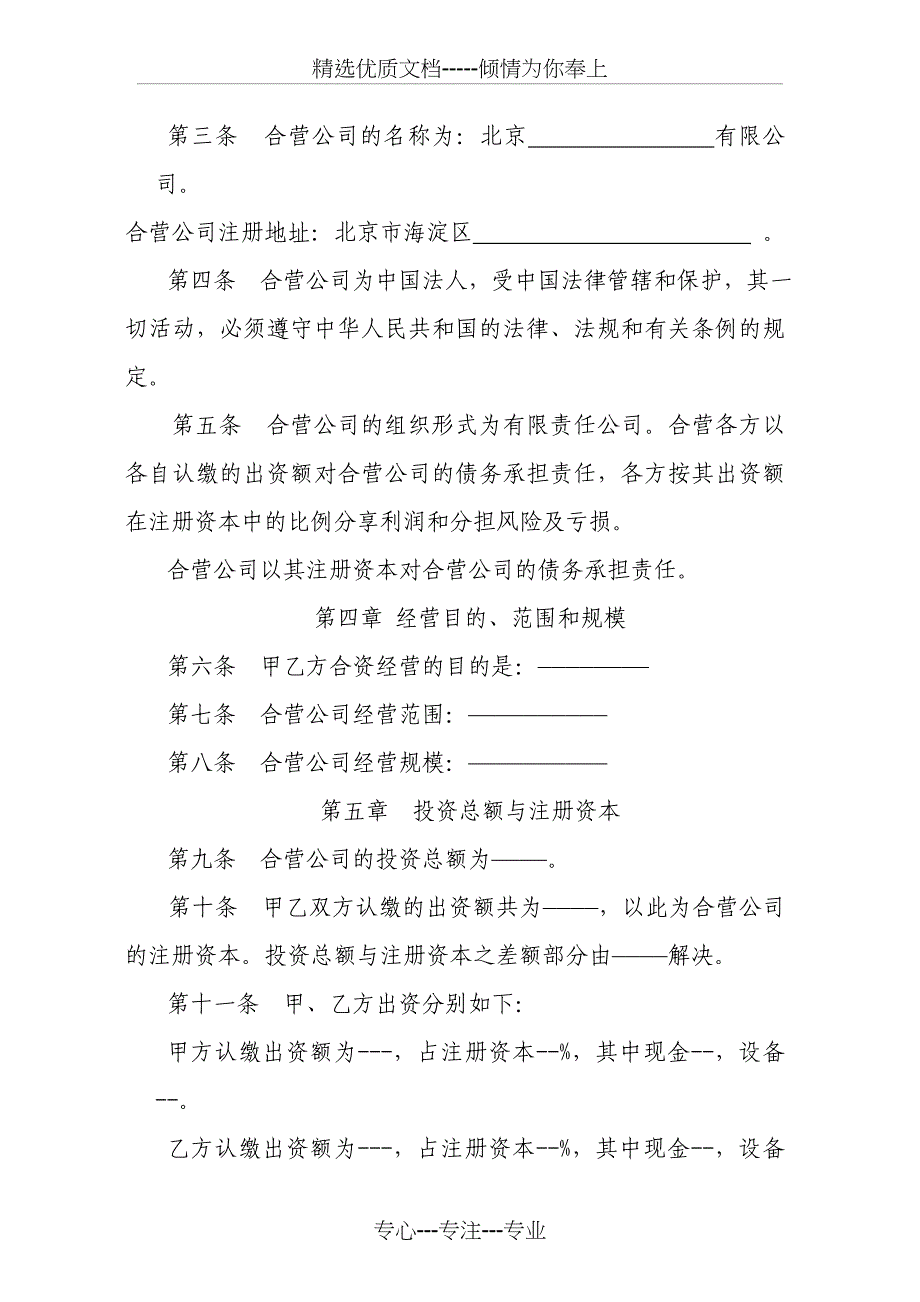 精选优质文档-----倾情为你奉上
第三条　合营公司的名称为：北京________________有限公
司。
合营公司注册地址：北京市海淀区________________________ 。
第四条　合营公司为中国法人，受中国法律管辖和保护，其一
切活动，必须遵守中华人民共和国的法律、法规和有关条例的规
定。
第五条　合营公司的组织形式为有限责任公司。合营各方以
各自认缴的出资额对合营公司的债务承担责任，各方按其出资额
在注册资本中的比例分享利润和分担风险及亏损。
合营公司以其注册资本对合营公司的债务承担责任。
第四章 经营目的、范围和规模
第六条　甲乙方合资经营的目的是：————————
第七条　合营公司经营范围：——————————
第八条　合营公司经营规模：——————————
第五章　投资总额与注册资本
第九条　合营公司的投资总额为————。
第十条　甲乙双方认缴的出资额共为————，以此为合营公司
的注册资本。投资总额与注册资本之差额部分由————解决。
第十一条　甲、乙方出资分别如下：
甲方认缴出资额为---，占注册资本--%，其中现金--，设备
--。
乙方认缴出资额为---，占注册资本--%，其中现金--，设备
专心---专注---专业